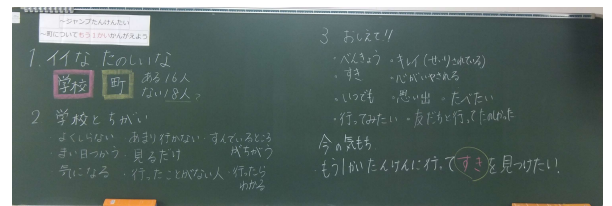 ～ジャンプたんけんたい
～町についてもう1かいかんがえよう
1. イイな たのしいな
学校 町 ある16人
ない18人?
2 学校とちがい
よくしらない・あまり行かない・すんでいるところ
がちがう
・まい日つかう・見るだけ
・気になる ・行ったことがない人・行ったら
わかる
3 おしえて!!
・べんきょう ・キレイ(せいりされている)
・すき ・心がいやされる
・いつでも ・思い出 ・たべたい
・行ってみたい ・友だちと行ってたのしかった
今の気もち
もう1かいたんけんに行ってすきを見つけたい!